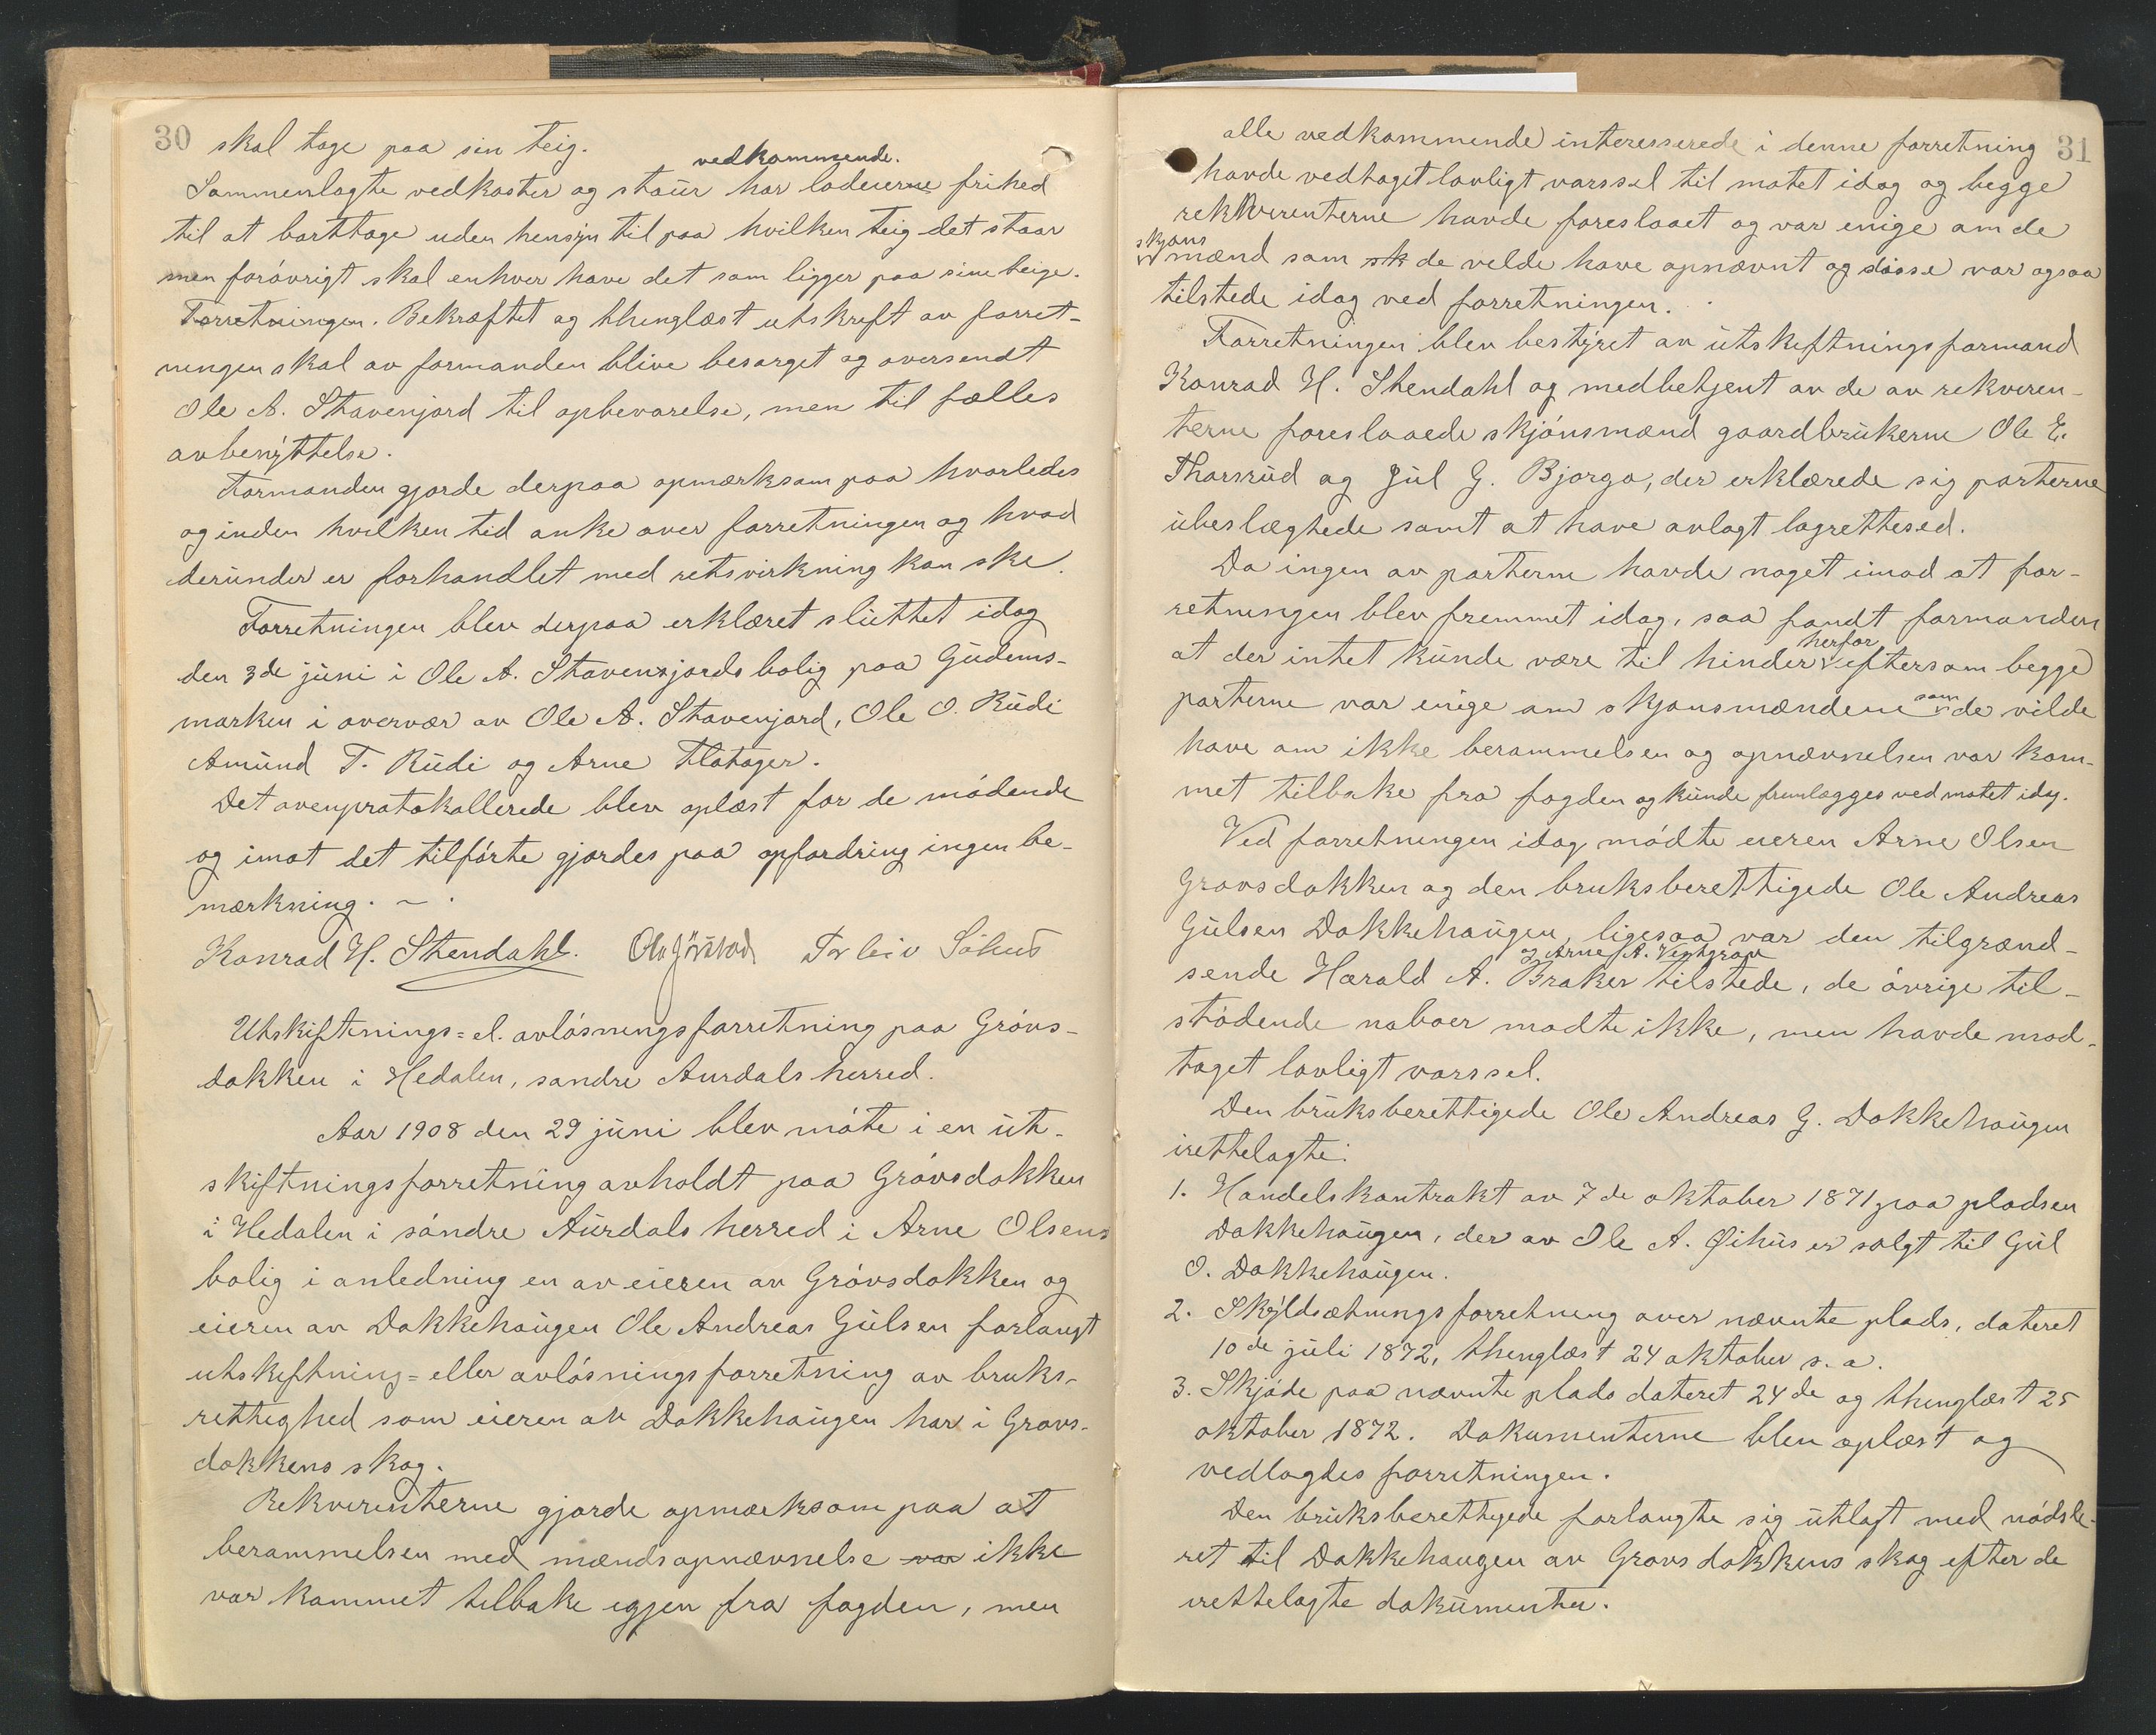 30 skal tage paa sin teig.
vedkommende.
Sammenlagte vedkaster og staur har lodeierne frihed
til at borttage uden hensyn til paa hvilken teig det staar
men forøvrigt skal enhver have det som ligger paa sine teige.
Forretningen. Bekræftet og thinglæst utskrift av forret-
ningen skal av formanden blive besørget og oversendt
Ole A. Stavenjord til opbevarelse, men til fælles
avbenyttelse.
Formanden gjorde derpaa opmærksom paa hvorledes
og inden hvilken tid anke over forretningen og hvad
derunder er forhandlet med retsvirkning kan ske.
Forretningen blev derpaa erklæret sluttet idag
den 3de juni i Ole A. Stavenjords bolig paa Gudems-
marken i overvær av Ole A. Stavenjord, Ole O. Rudi
Amund T. Rudi og Arne Fløtager.
Det ovenprotokollerede blev oplæst for de mødende
og imot det tilførte gjordes paa opfordring ingen be-
mærkning. ~.
Konrad H. Stendahl. Ola Jörstad Torleiv Söhus
Utskiftnings- el. avløsningsforretning paa Grøvs-
dokken i Hedalen, søndre Aurdals herred.
Aar 1908 den 29 juni blev møte i en ut-
skiftningsforretning avholdt paa Grøvsdokken
i Hedalen i søndre Aurdals herred i Arne Olsens
bolig i anledning en av eieren av Grøvsdokken og
eieren av Dokkehaugen Ole Andreas Gulsen forlangt
utskiftning- eller avløsningsforretning av bruks-
rettighed som eieren av Dokkehaugen har i Grøvs-
dokkens skog.
Rekvirenterne gjorde opmærksom paa at
berammelsen med mændsopnævnelse var ikke
var kommet tilbake igjen fra fogden, men
31
alle vedkommende interesserede i denne forretning
havde vedtaget lovligt varssel til møtet idag og begge
rekvirenterne havde foreslaaet og var enige om de
skjøns
mænd som sk de vilde have opnævnt og disse var ogsaa
tilstede idag ved forretningen.
Forretningen blev bestyret av utskiftningsformand
Konrad H. Stendahl og medbetjent av de av rekviren-
terne foreslaaede skjønsmænd gaardbrukerne Ole E.
Thorsrud og Jul G. Bjørgo, der erklærede sig parterne
ubeslægtede samt at have avlagt lagrettesed.
Da ingen av parterne havde noget imod at for-
retningen blev fremmet idag, saa fandt formanden
herfor
at der intet kunde være til hinder eftersom begge
parterne var enige om skjønsmændene som de vilde
have om ikke berammelsen og opnævnelsen var kom-
met tilbake fra fogden og kunde fremlægges ved møtet idag.
Ved forretningen idag mødte eieren Arne Olsen
Grøvsdokken og den bruksberettigede Ole Andreas
Gulsen Dokkehaugen, ligesaa var den tilgrænd-
og Arne A. Vestgrov
sende Harald A. Braker tilstede, de øvrige til-
stødende naboer mødte ikke, men havde mod-
taget lovligt varssel.
Den bruksberettigede Ole Andreas G. Dokkehaugen
irettelagte:
1. Handelskontrakt av 7de oktober 1871 paa pladsen
Dokkehaugen, der av Ole A. Øihus er solgt til Gul
O. Dokkehaugen.
2. Skyldsætningsforretning over nævnte plads, dateret
10de juli 1872, thinglæst 24 oktober s. a.
3. Skjøde paa nævnte plads dateret 24de og thinglæst 25
oktober 1872. Dokumenterne blev oplæst og
vedlagdes forretningen.
Den bruksberettigede forlangte sig utlagt med nødsle-
ret til Dokkehaugen av Grøvsdokkens skog efter de
irettelagte dokumenter.